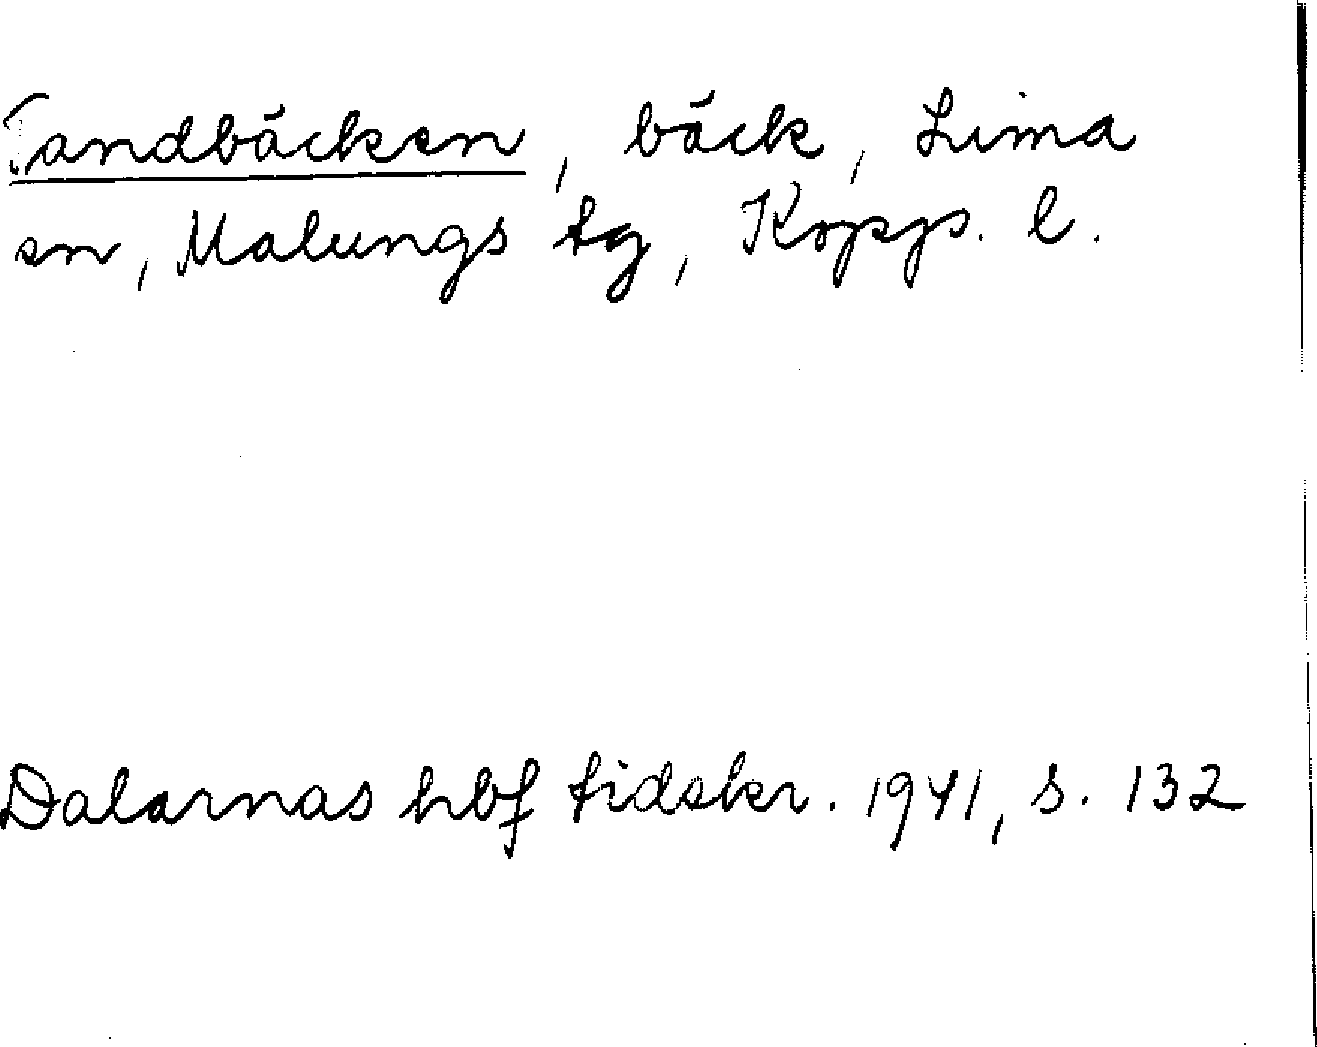 Tandbäcken, bäck, Lima
sn, Malungs tg, Kopps. l.
Dalarnas hbf tidskr. 1941, s. 132